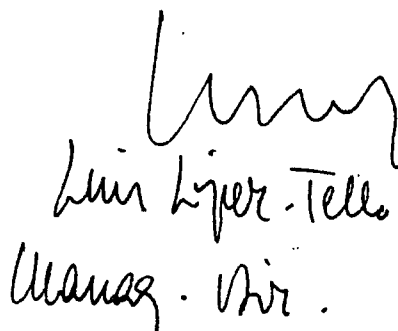 Luis López-Tello
Manag. Dir.